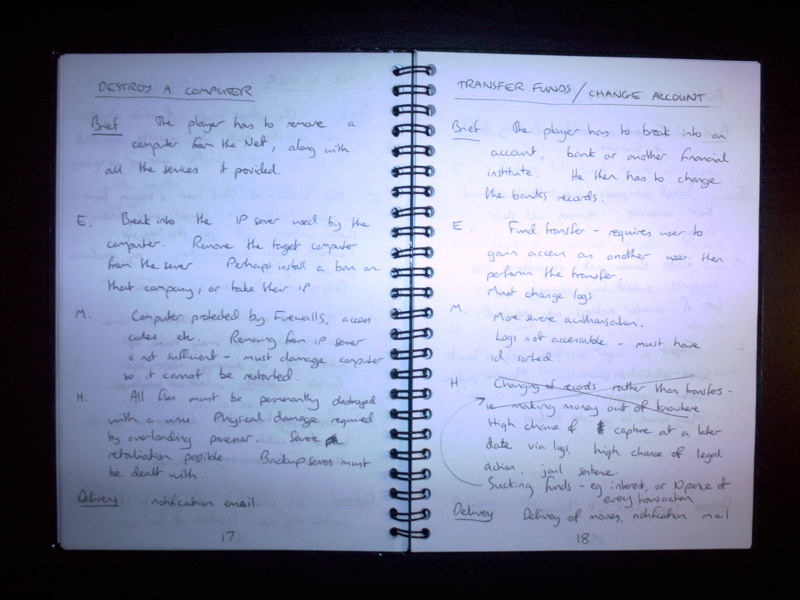 DESTROY A COMPUTER
Brief The player has to remove a
computer from the Net, along with
all the services it provided.
E. Break into the IP server used by the
computer. Remove the target computer
from the server. Perhaps install a ban on
that company, or take their IP.
M. Computer protected by Firewalls, access
codes etc. Removing from IP server
is not sufficient - must damage computer
so it cannot be restarted.
H. All files must be permanently destroyed
with a virus. Physical damage required
by overloading processor. Severe
retaliation possible. Backup servers must
be dealt with.
Delivery notification email.
17
TRANSFER FUNDS / CHANGE ACCOUNT
Brief The player has to break into an
account, bank or another financial
institute. He then has to change
the banks records.
E. Fund transfer - requires user to
gain access as another user, then
perform the transfer.
Must change logs.
M. More severe authorisation.
Logs not accessable - must have
id sorted
H. Changing of records rather than transfers -
ie making money out of knowhere
High chance of capture at a later
date via logs, high chance of legal
action, jail sentence.
Sucking funds - eg interest, or N pence of
every transaction
Delivery Delivery of money, notification mail
18